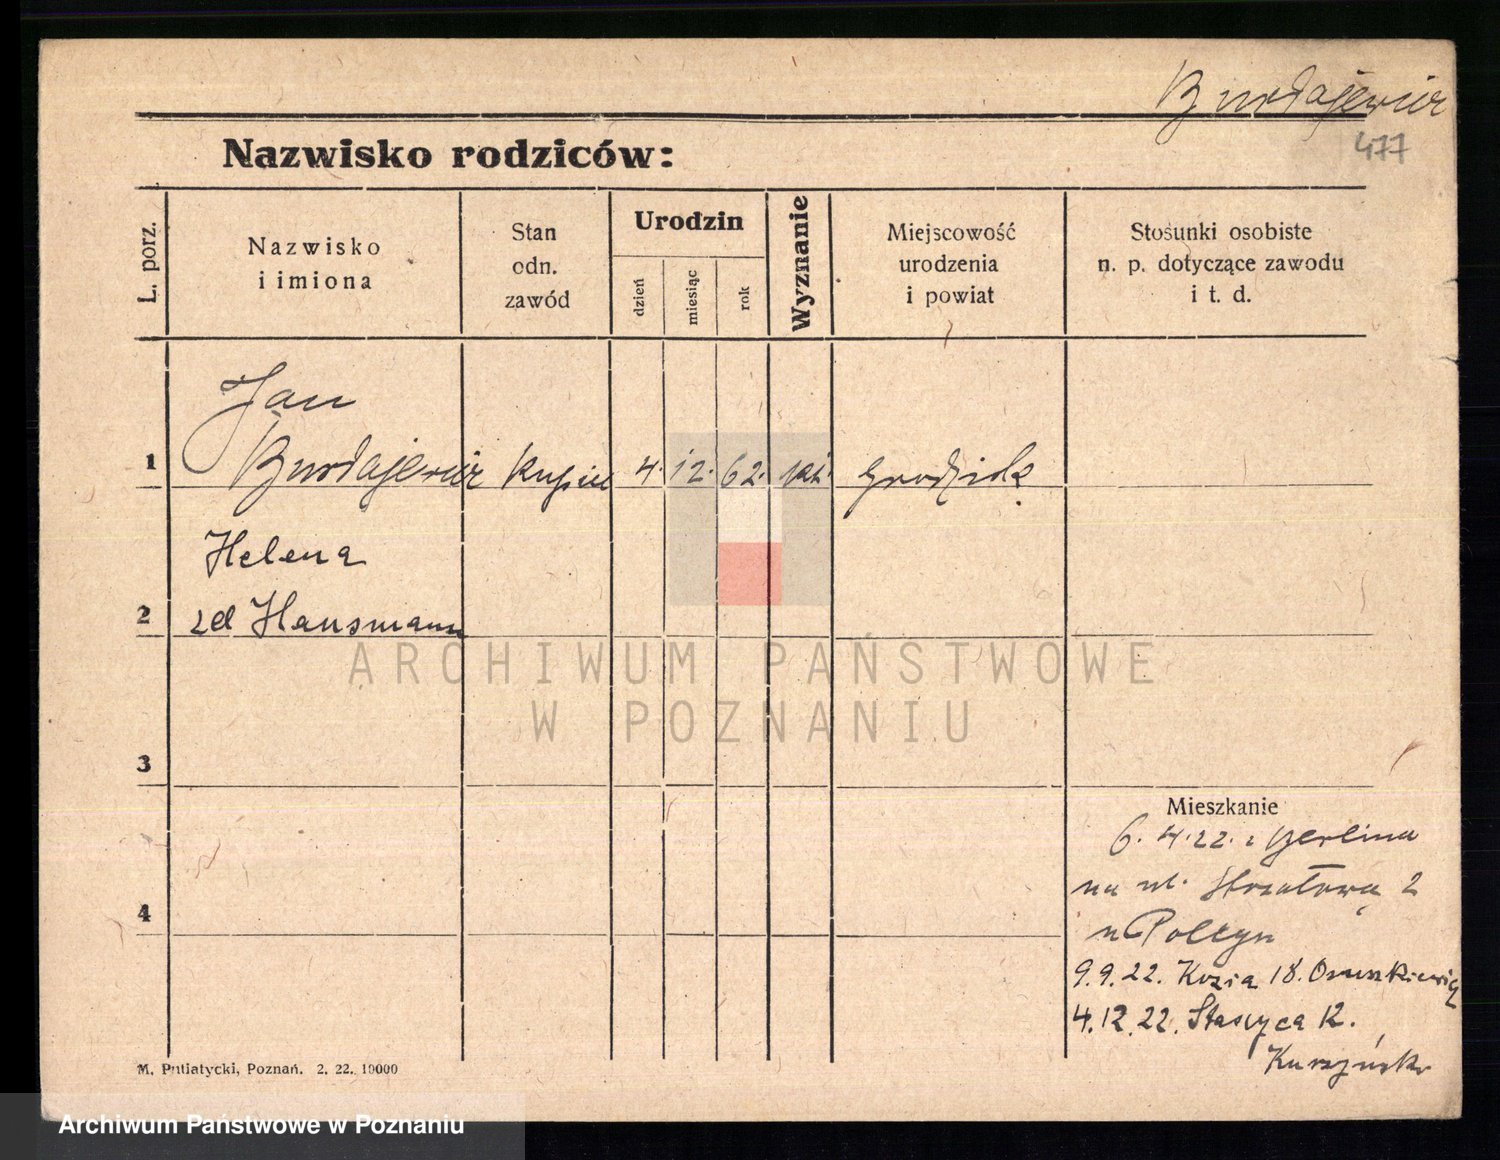 Burdajewicz
477
Nazwisko rodziców:
L. porz.
Nazwisko
i imiona
Stan
odn.
zawód
Urodzin
dzień
miesiąc
rok
Wyznanie
Miejscowość
urodzenia
i powiat
Stosunki osobiste
n. p. dotyczące zawodu
i t. d.
Jan
1 Burdajewicz Kupiec 4. 12. 62. kat. Grodzisk
Helena
2 zd Hausmann
ARCHIWUM PAŃSTWOWE
W POZNANIU
3
Mieszkanie
6. 4. 22. z Berlina
na ul. Strzałową 2
4
u
9.9.22. Kozia 18.
4.12.22. Staszyca 12.
M. Putiatycki, Poznań. 2. 22. 10000
Archiwum Państwowe w Poznaniu